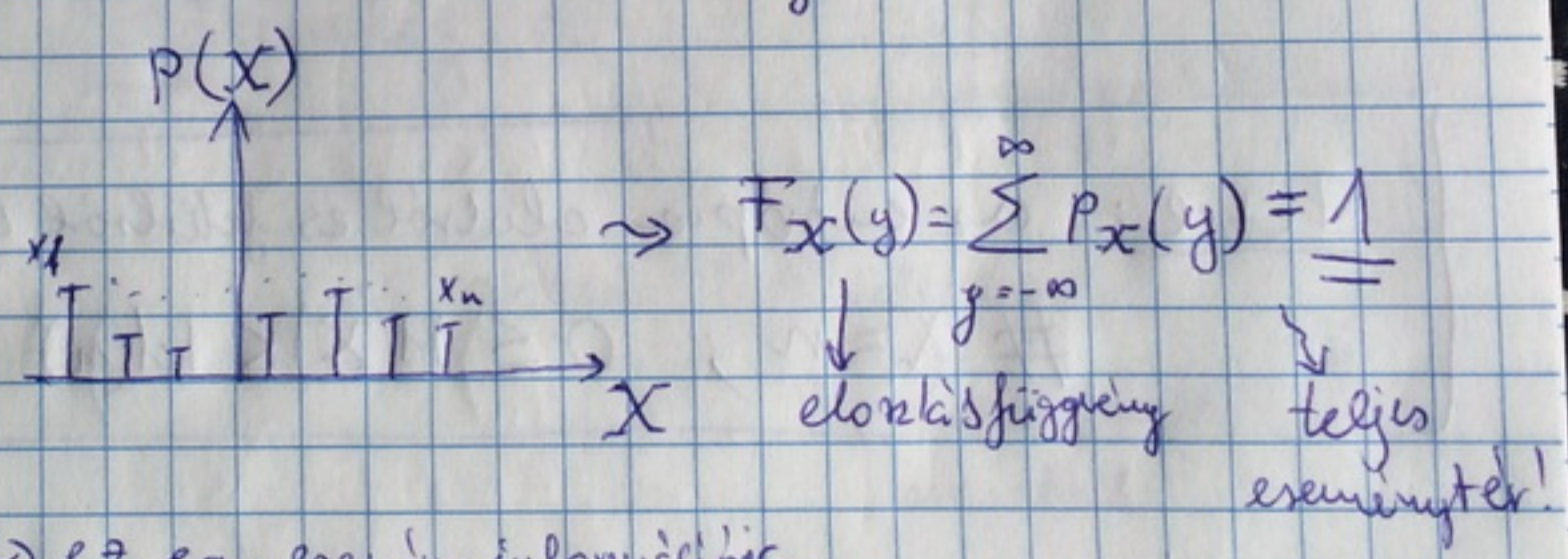 P(X)
x1
xn
X
⇝ F_X(y) = ∑_{y=-∞}^{∞} P_X(y) = 1
eloszlásfüggvény
teljes
eseménytér!